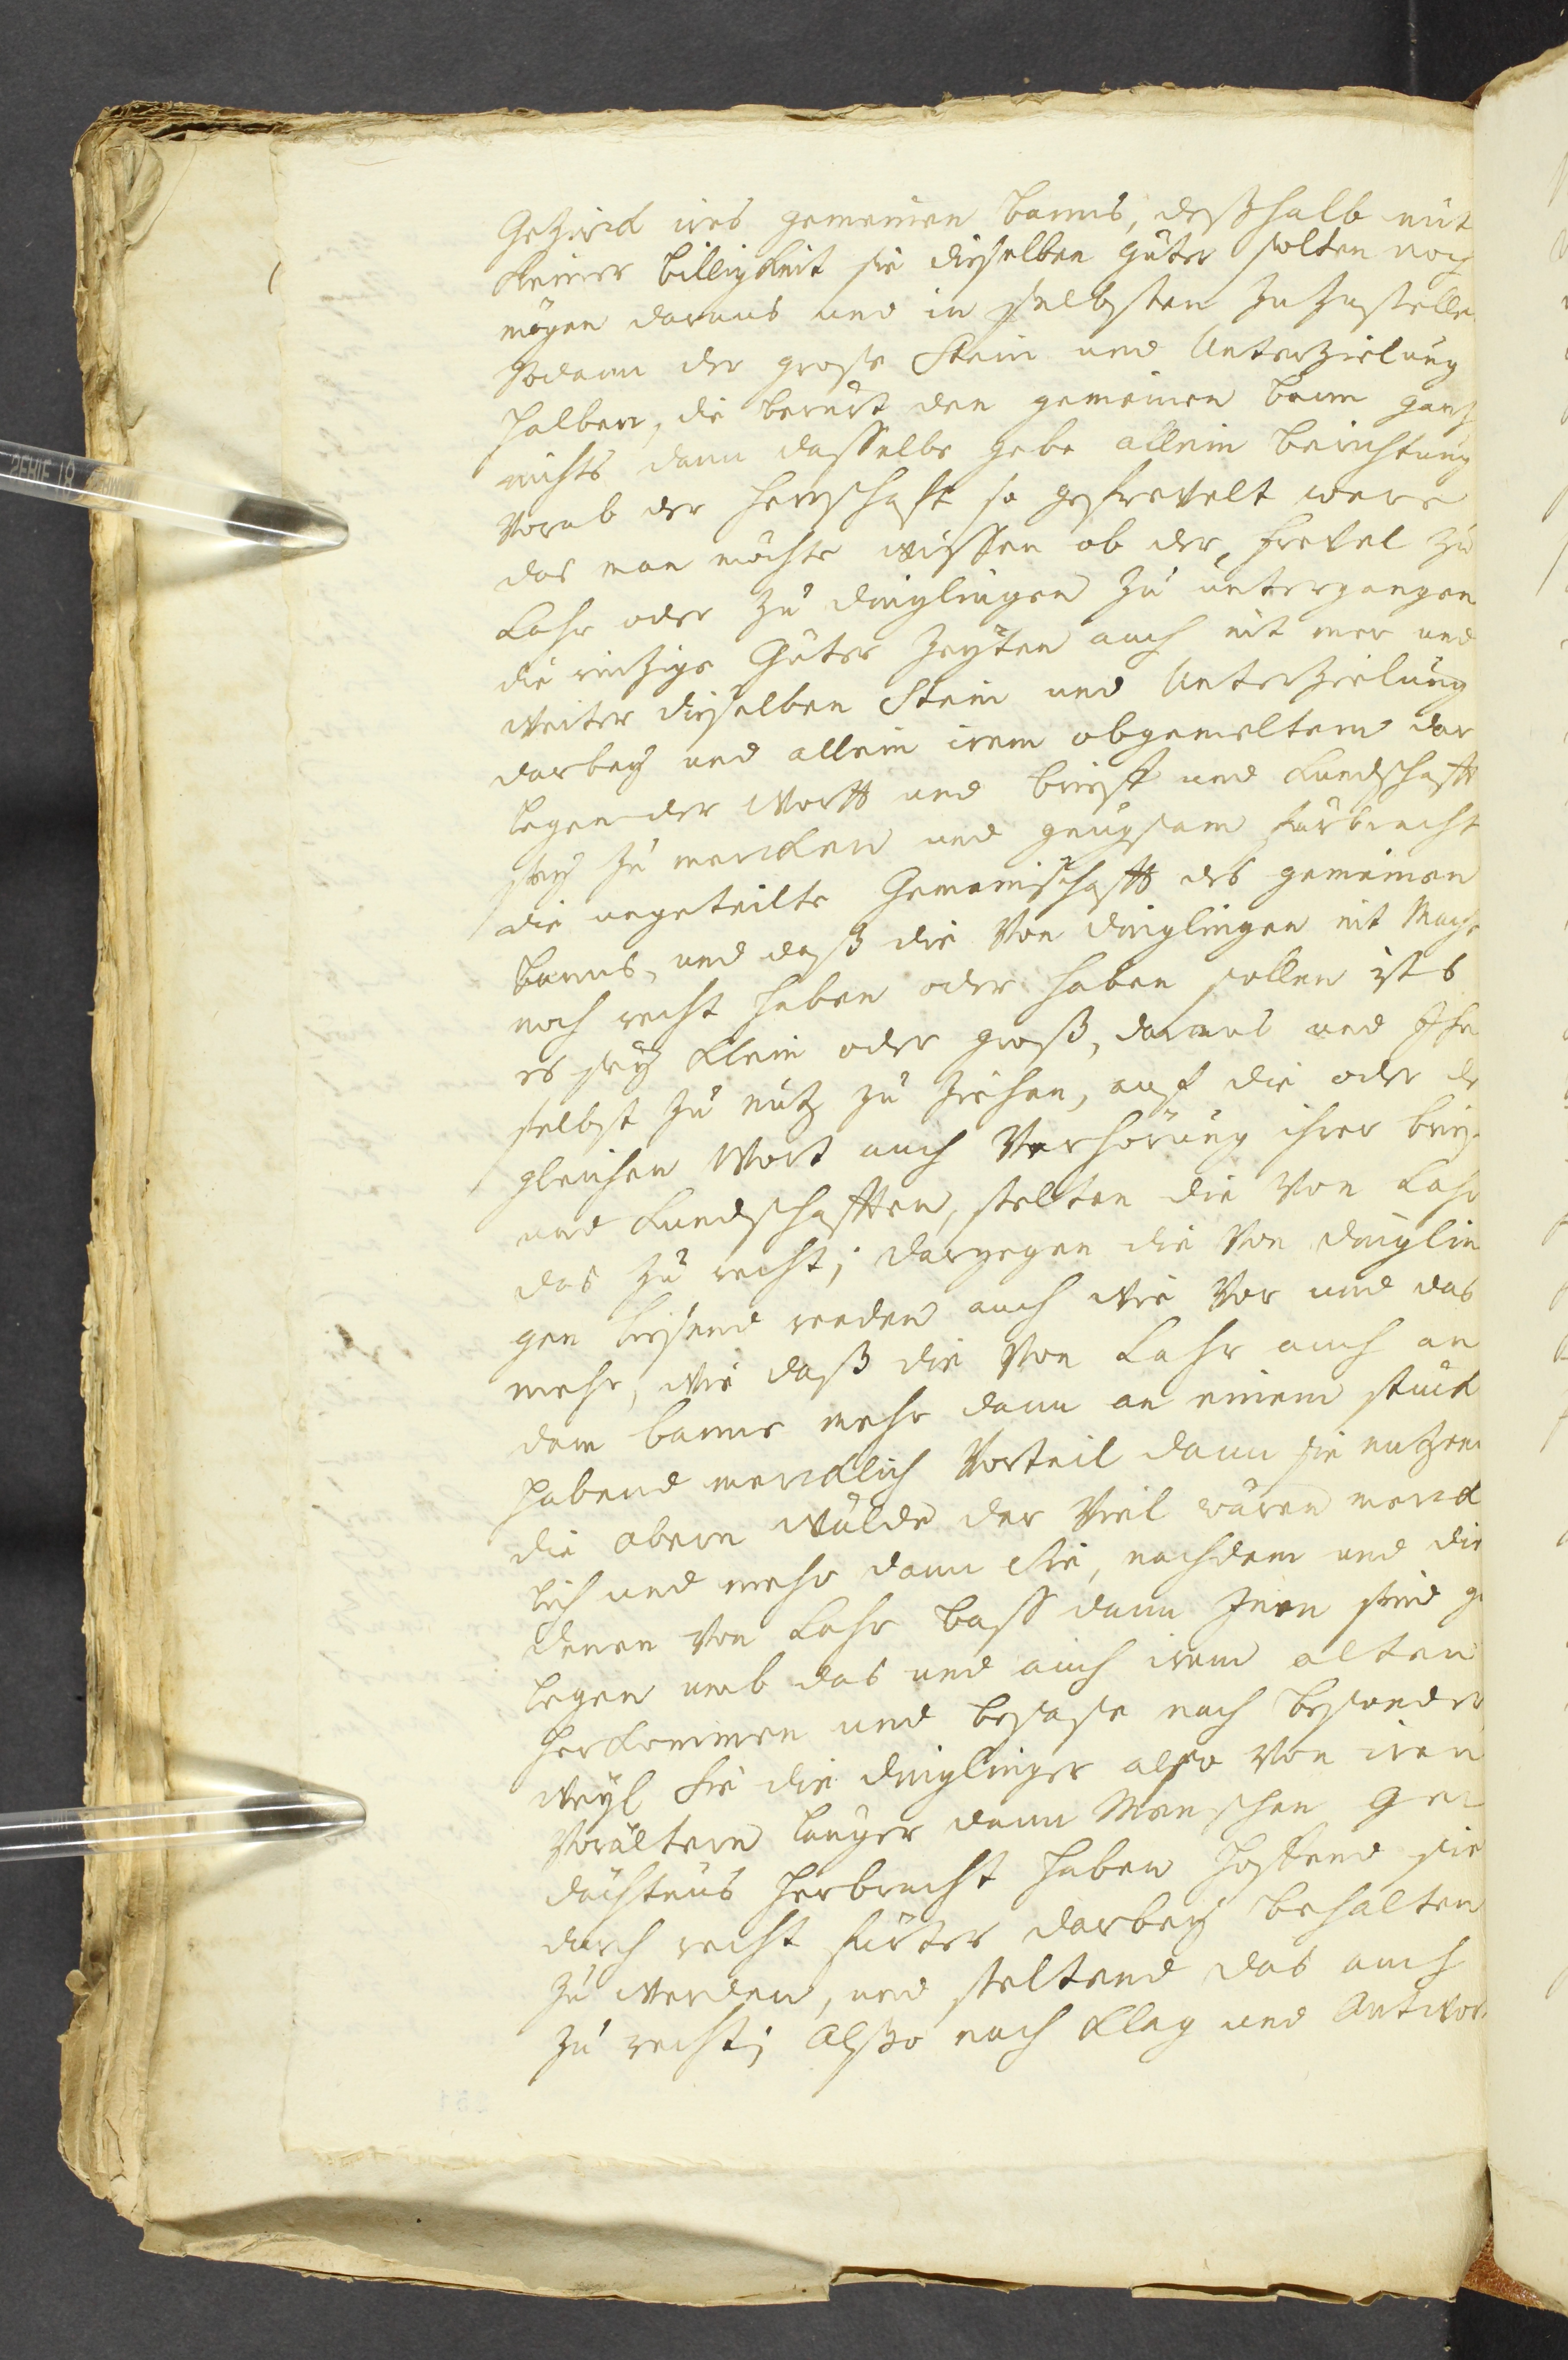 Gezirck ires gemeinen banns, deßhalb mit
keiner billigkeit sie dieselben güter solten noch
mögen daraus und in selbsten zuzustellen
Sodann der große Stein und Unterzielung
halben, die berürt den gemeinen bann gantz
nichts dann dasselbe gebe allein berichtung
Vorab der herrschafft so gefrevelt were
das man möchte wissen ob der, frevel zu
Lahr oder zu dinglingen zu untergangen
die einzige Güter zeygten auch nit mer und
weiter dieselben Stein und Unterzielung
darbey und allein irem obgemeltem dar
legen der wortt und brieff und kundschafft
sey zu mercken und gnugsam fürbracht
die ungeteilte Gemeinschafft des gemeinen
banns, und daß die von dinglingen nit Macht
noch recht haben oder haben sollen ists
es sey klein oder groß, daraus und Ihn
selbst zu nutz zu ziehen, auf die oder der
gleichen Wort auch Verhörung ihrer brief
und kundschafften, stellten die von Lahr
das zu recht; dargegen die von dinglin
gen liesend reden auch wie vor und das
mehr, wie daß die von Lahr auch an
dem banne mehr dann an einem stuck
habend mercklich Vorteil dann sie nutzen
die obern wälde der viel wären merck
lich und mehr dann Sie, nachdem und die
denen von Lahr bass dann Inen sind ge
legen umb das und auch irem alten
herkommen und besäße nach besonder
weyl sie die dinglinger also von iren
Vorältern langer dann Menschen Ge
dächtnüs herbracht haben hoffend sie
durch recht fürter darbey behalten
zu werden, und stellend das auch
zu recht; Also nach klag und Antwort